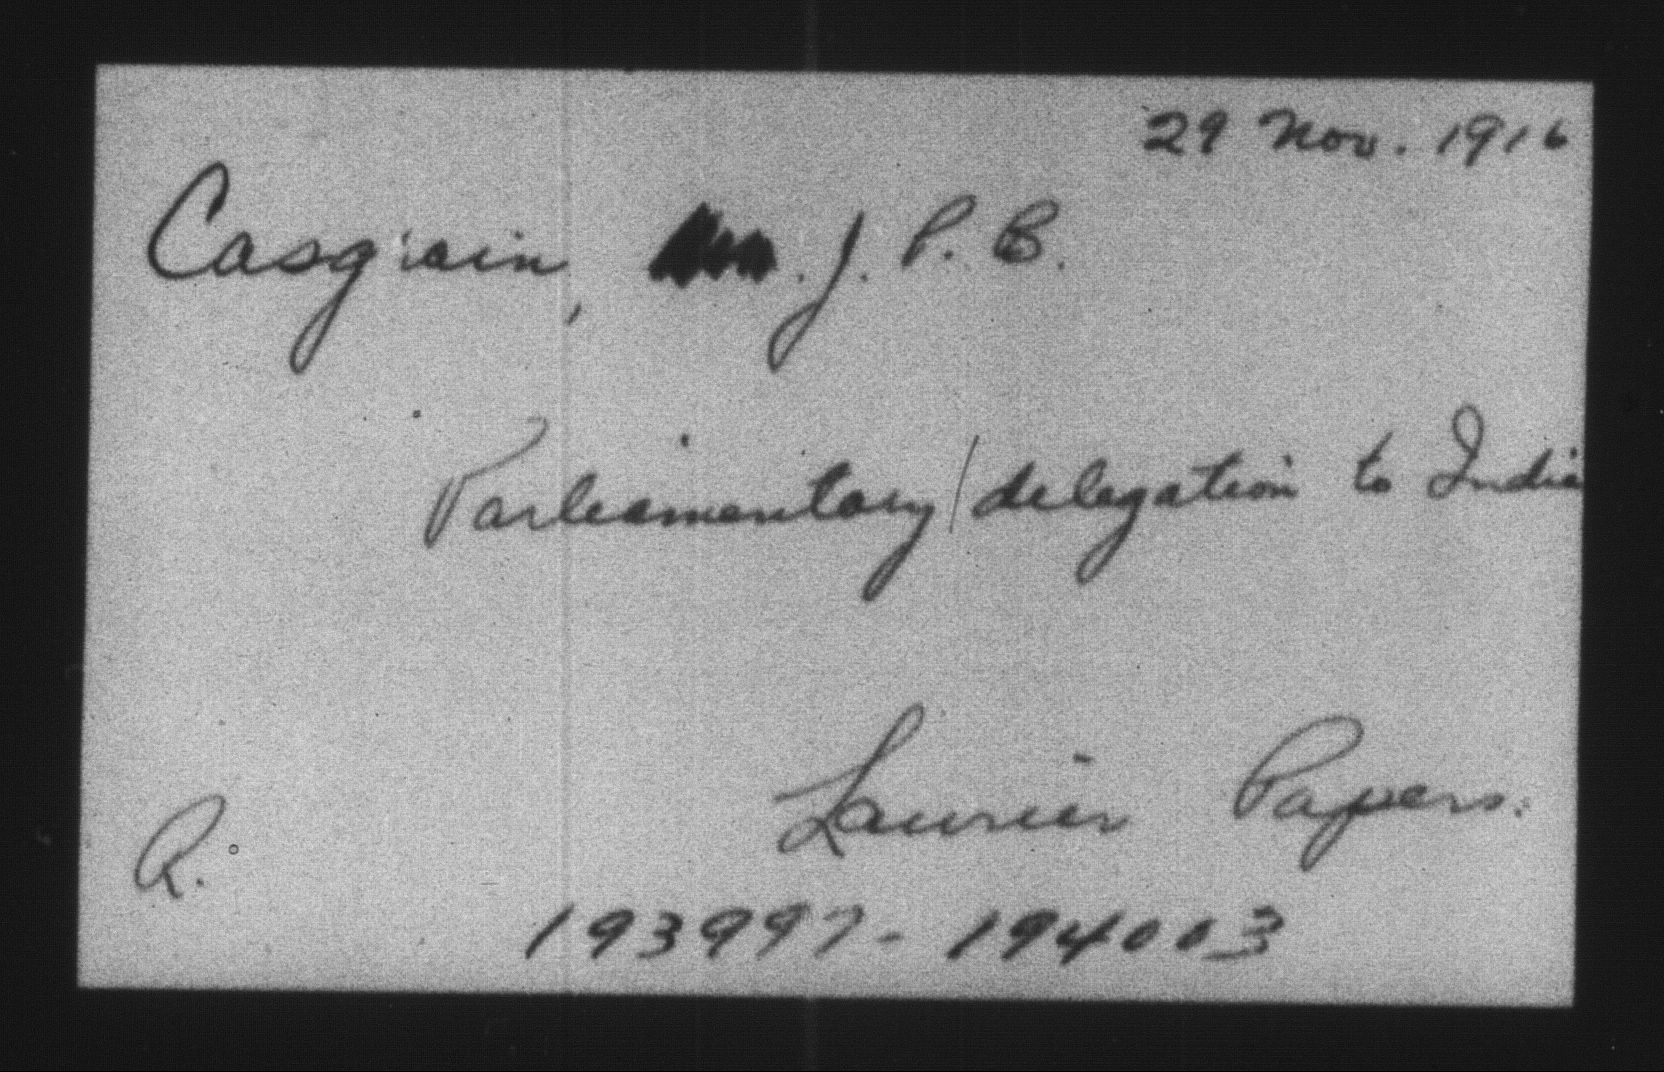 29 Nov. 1916
Casgrain, J. P. B.
Parliamentary/delegation to India
Laurier Papers.
R.
193997-194003